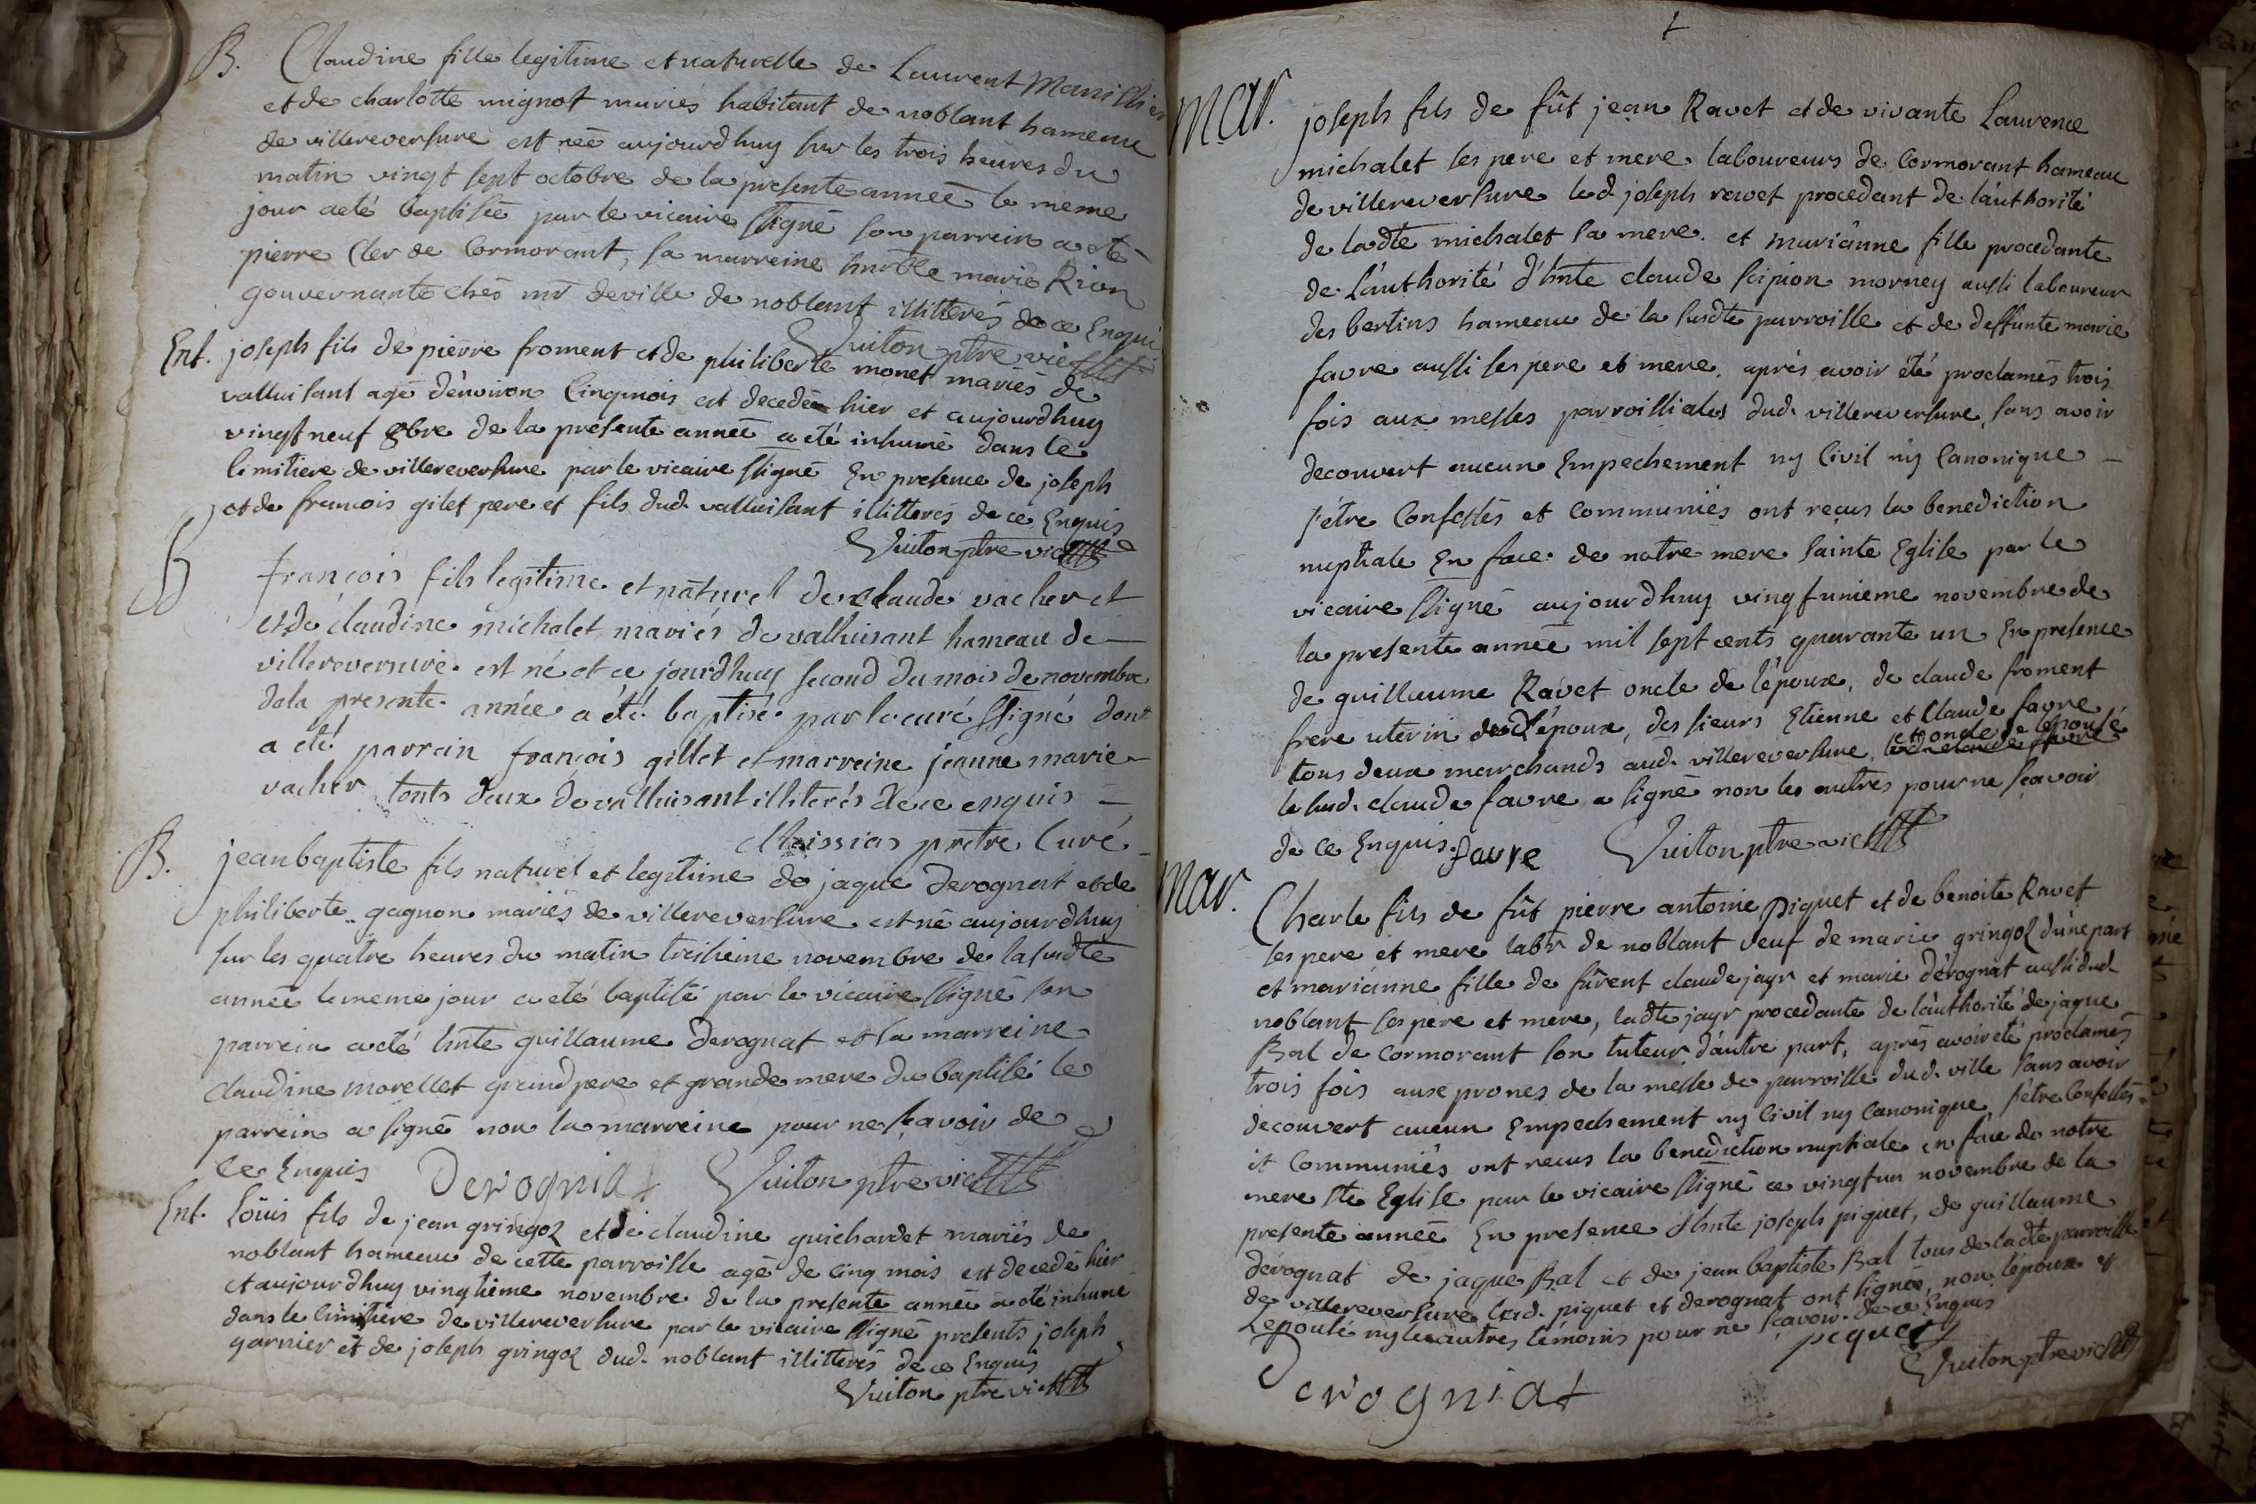 B. Claudine fille legitime et naturelle de Laurent Manillier
et de charlotte mignot mariés habitant de noblant hameau
de villereversure est née aujourdhuy sur les trois heures du
matin vingt sept octobre de la presente année le meme
jour a eté baptisée par le vicaire ssigné son parrein a eté
pierre Cler de Cormorant, sa marreine hnble marie Rion
gouvernante chés mr deville de noblant illitterés de ce Enquis
Vuiton ptre vic
Ent. joseph fils de pierre froment et de philiberte monet mariés de
valluisant agé d'environ Cinq mois est decedé hier et aujourdhuy
vingt neuf 8bre de la presente année a eté inhumé dans le
Cimitiere de villereversure par le vicaire ssigné En presence de joseph
et de francois gilet pere et fils dud. valluisant illitterés de ce Enquis
Vuiton ptre vic
B françois fils legitime et naturel de claude vacher et
et de claudine michalet mariés de valluisant hameau de
villereversure est né et ce jourdhuy second du mois de novembre
de la presente année a été baptisé par le curé ssigné dont
a été parrain françois gillet et marreine jeanne marie
vacher touts deux de valluisant illiterés de ce enquis
Maissiat pretre Curé
B. jean baptiste fils naturel et legitime de jaque derognat et de
philiberte gagnon mariés de villereversure est né aujourdhuy
sur les quatre heures du matin treisieme novembre de la susdte
année le meme jour a eté baptisé par le vicaire ssigné son
parrein a eté hnte guillaume derognat et la marreine
claudine morellet grand pere et grande mere du baptisé le
parrein a signé non la marreine pour ne sçavoir de
ce Enquis Derogniat Vuiton ptre vic
Ent. Loüis fils de jean gringoz et de claudine guichardet mariés de
noblant hameau de cette parroisse agé de cinq mois est decedé hier
et aujourdhuy vingtieme novembre de la presente année a eté inhumé
dans le Cimitiere de villereversure par le vicaire ssigné presents joseph
garnier et de joseph gringoz dud. noblant illitterés de ce Enquis
Vuiton ptre vic
mar. joseph fils de fût jean Ravet et de vivante Laurence
michalet ses pere et mere laboureurs de Cormorant hameau
de villereversure led. joseph ravet procedant de l'authorité
de ladte michalet sa mere. et marianne fille procedante
de l'authorité d'hnte claude scipion morney aussi laboureur
des bertins hameau de la susdte parroisse et de deffunte marie
favre aussi ses pere et mere, aprés avoir été proclamés trois
fois aux messes parroissiales dud. villereversure, sans avoir
decouvert aucun Empechement ny Civil ny Canonique
s'étre Confessés et Communiés ont reçus la benediction
nuptiale En face de notre mere Sainte Eglise par le
vicaire ssigné aujourdhuy vingt unieme novembre de
la presente année mil sept cents quarante un En presence
de guillaume Ravet oncle de l'époux, de claude froment
frere uterin de l'époux, des sieurs Etienne et Claude favre
et oncle de l'épousé
tous deux marchands aud. villereversure
le susd. claude favre a signé non les autres pour ne sçavoir
de ce Enquis. favre Vuiton ptre vic
mar. Charle fils de fût pierre antoine piguet et de benoite Ravet
ses pere et mere labr de noblant veuf de marie gringoz d'une part
et marianne fille de fûrent claude jayr et marie dérognat aussi dud.
noblant ses pere et mere, ladte jayr procedante de l'authorité de jaque
Bal de Cormorant son tuteur d'autre part, aprés avoir eté proclamés
trois fois aux prones de la messe de parroisse dud. ville sans avoir
decouvert aucun Empechement ny Civil ny Canonique, s'étre Confessés
et Communiés ont recus la benediction nuptiale en face de notre
mere ste Eglise par le vicaire ssigné ce vingt un novembre de la
presente année En presence d'hnte joseph piguet, de guillaume
dérognat de jaque Bal et de jean baptiste Bal tous de ladte parroisse
de villereversure lesd. piguet et derognat ont signés, non l'époux et
L'epousé ny les autres témoins pour ne sçavoir de ce Enquis
piguet Vuiton ptre vic
Derogniat